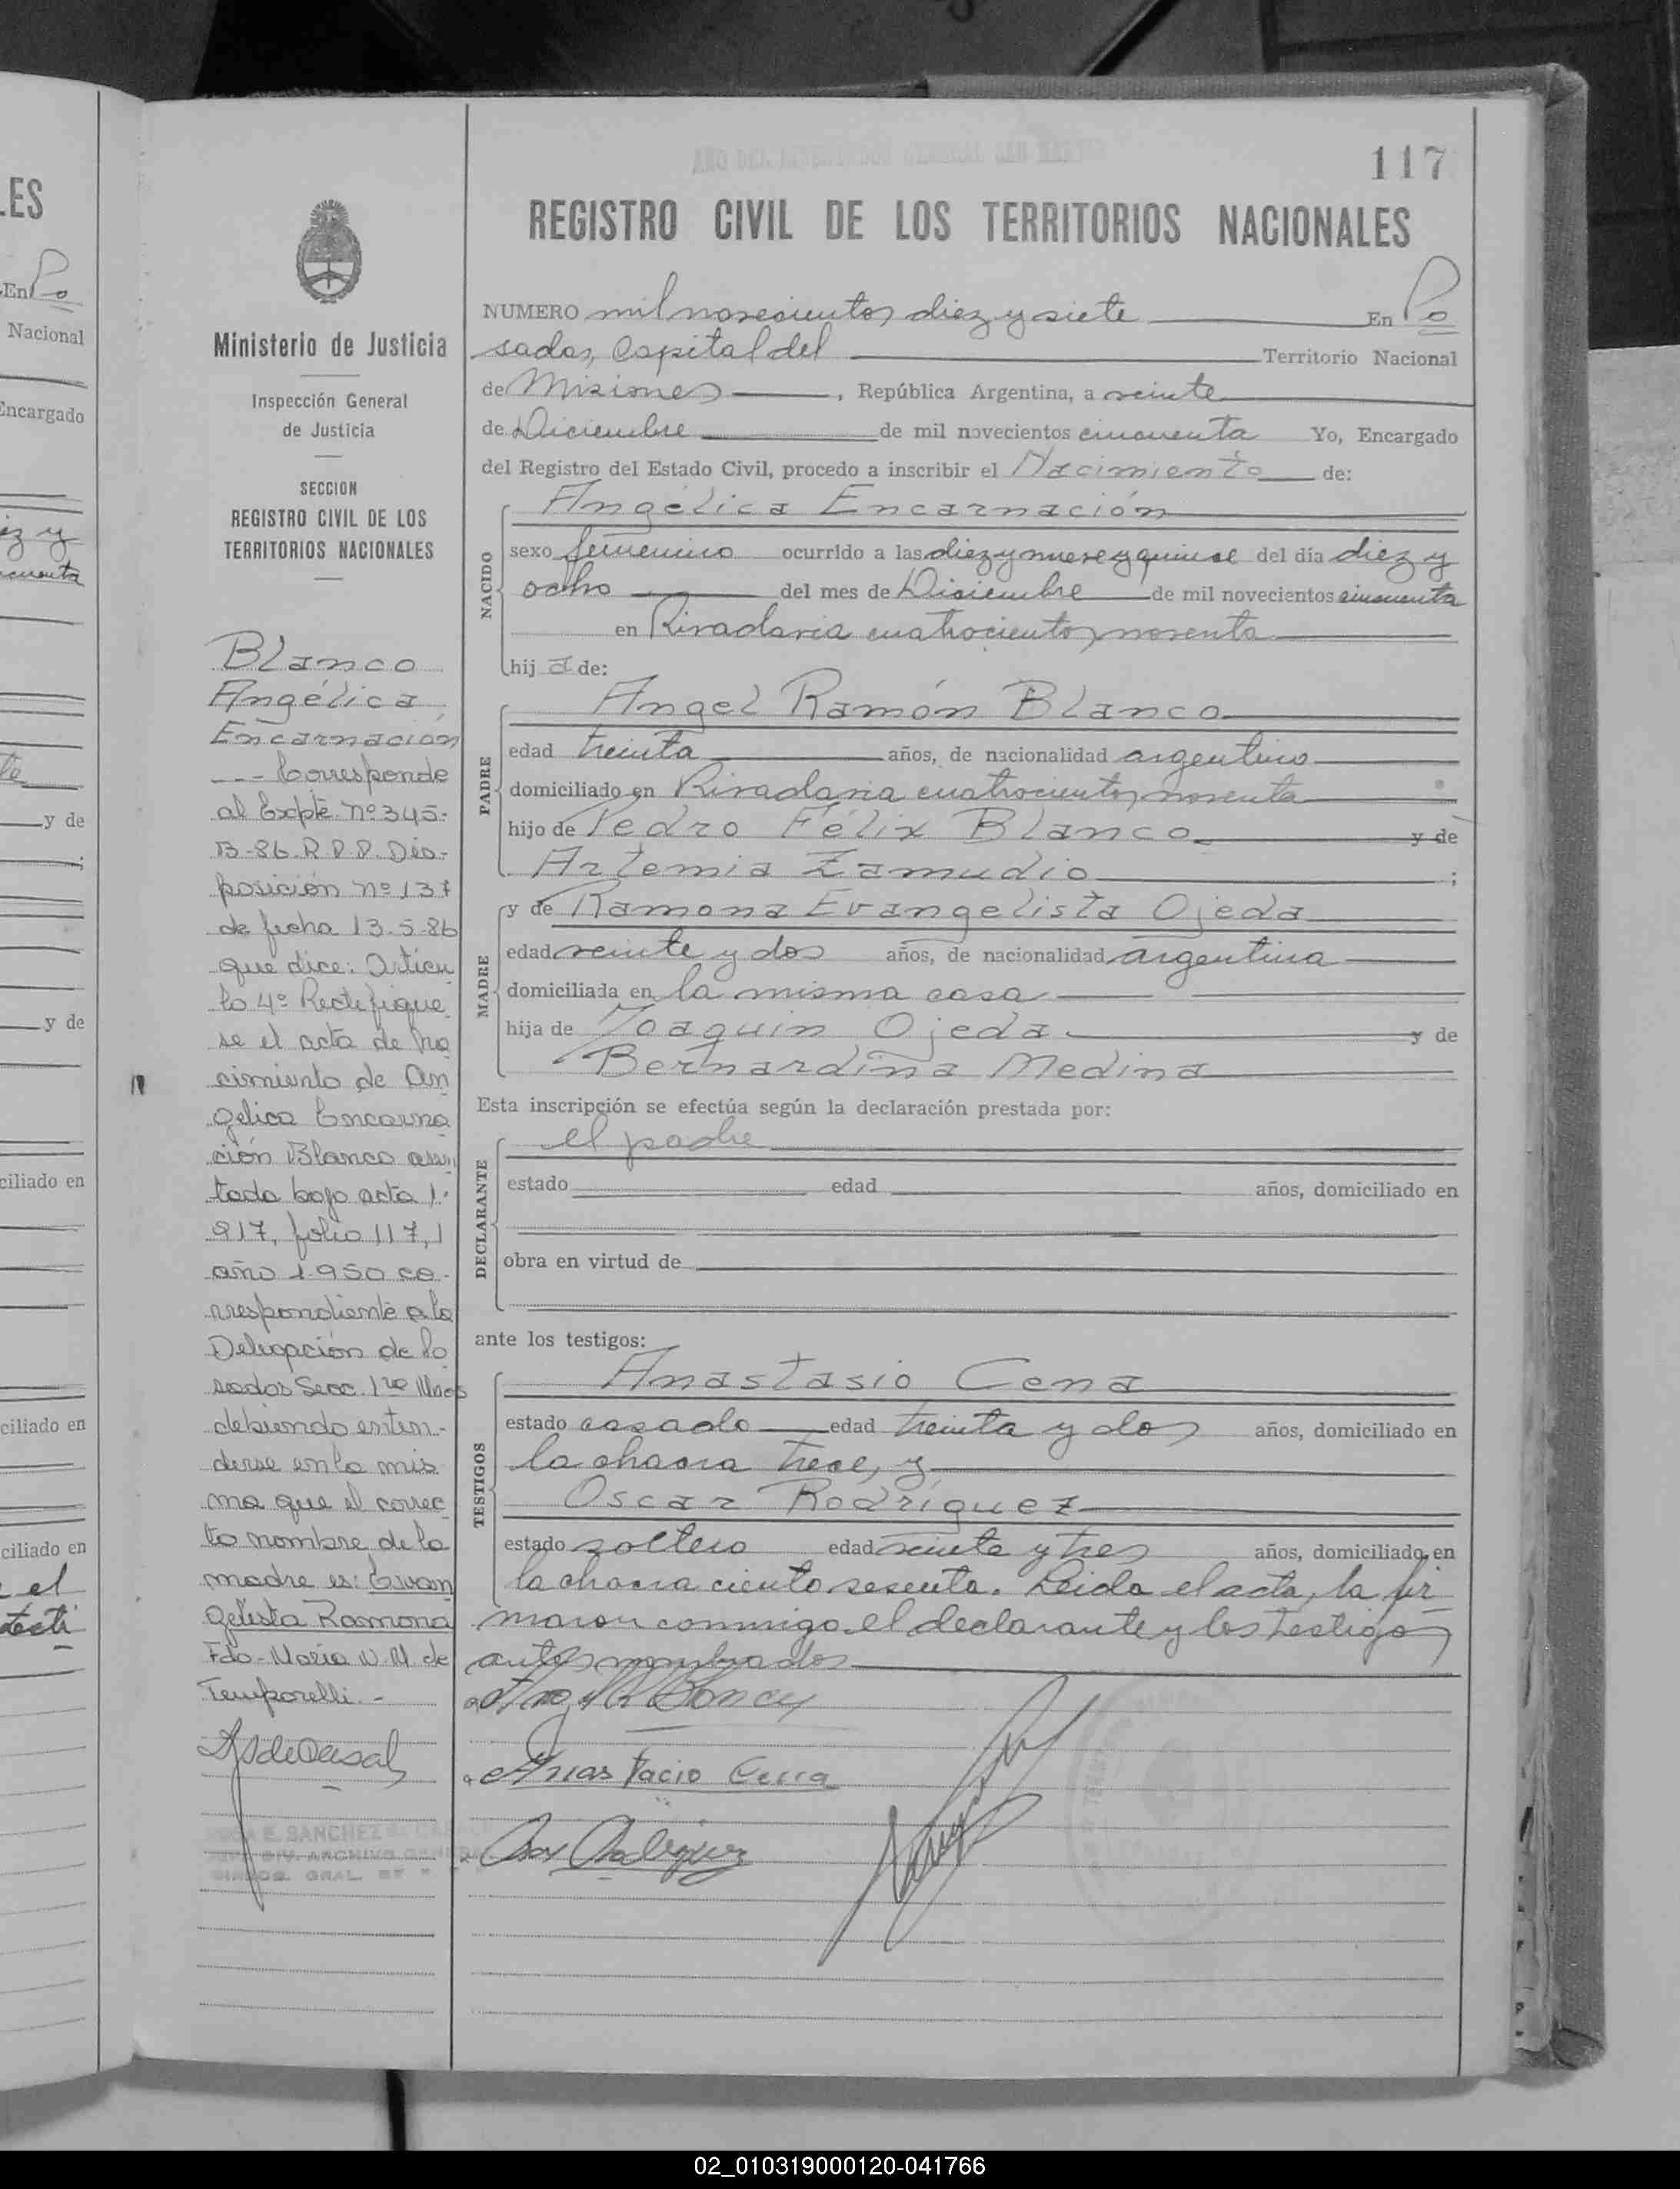 AÑO DEL LIBERTADOR GENERAL SAN MARTIN
117
REGISTRO CIVIL DE LOS TERRITORIOS NACIONALES
NUMERO mil novecientos diez y siete En Po
sadas, Capital del Territorio Nacional
de Misiones, República Argentina, a veinte
de Diciembre de mil novecientos cincuenta Yo, Encargado
del Registro del Estado Civil, procedo a inscribir el Nacimiento de:
NACIDO
Angélica Encarnación
sexo femenino ocurrido a las diez y nueve y quince del día diez y
ocho del mes de Diciembre de mil novecientos cincuenta
en Rivadavia cuatrocientos noventa
hija de:
PADRE
Angel Ramón Blanco
edad treinta años, de nacionalidad argentino
domiciliado en Rivadavia cuatrocientos noventa
hijo de Pedro Félix Blanco y de
Artemia Zamudio ;
MADRE
y de Ramona Evangelista Ojeda
edad veinte y dos años, de nacionalidad argentina
domiciliada en la misma casa
hija de Joaquin Ojeda y de
Bernardina Medina
Esta inscripción se efectúa según la declaración prestada por:
DECLARANTE
el padre
estado edad años, domiciliado en
obra en virtud de
ante los testigos:
TESTIGOS
Anastasio Cena
estado casado edad treinta y dos años, domiciliado en
la chacra trece, y
Oscar Rodríguez
estado soltero edad veinte y tres años, domiciliado en
la chacra ciento sesenta. Leida el acta, la fir
maron conmigo el declarante y los testigos
antes nombrados
Angel R Blanco
Anastacio Cena
Oscar Rodriguez
Ministerio de Justicia
Inspección General
de Justicia
SECCION
REGISTRO CIVIL DE LOS
TERRITORIOS NACIONALES
Blanco
Angélica
Encarnación
--- Corresponde
al Expte. nº 345-
B-86. R.P.P. Dis-
posición nº 137
de fecha 13-5-86
que dice: Artícu
lo 4º Rectifíque
se el acta de na
cimiento de An
gelica Encarna
ción Blanco asen
tada bajo acta 1.
917, folio 117, 1
año 1.950 co-
rrespondiente a la
Delegación de Po
sadas Secc. 1ra Mnes
debiendo enten-
derse en la mis
ma que el correc
to nombre de la
madre es: Evan
gelista Ramona
Fdo- María N. M. de
Temporelli.-
E. SANCHEZ DE CASAL
DIV. ARCHIVO GENERAL
GRAL.
LES
En Po
Nacional
Encargado
y de
;
y de
ciliado en
ciliado en
ciliado en
el
testi
02_010319000120-041766